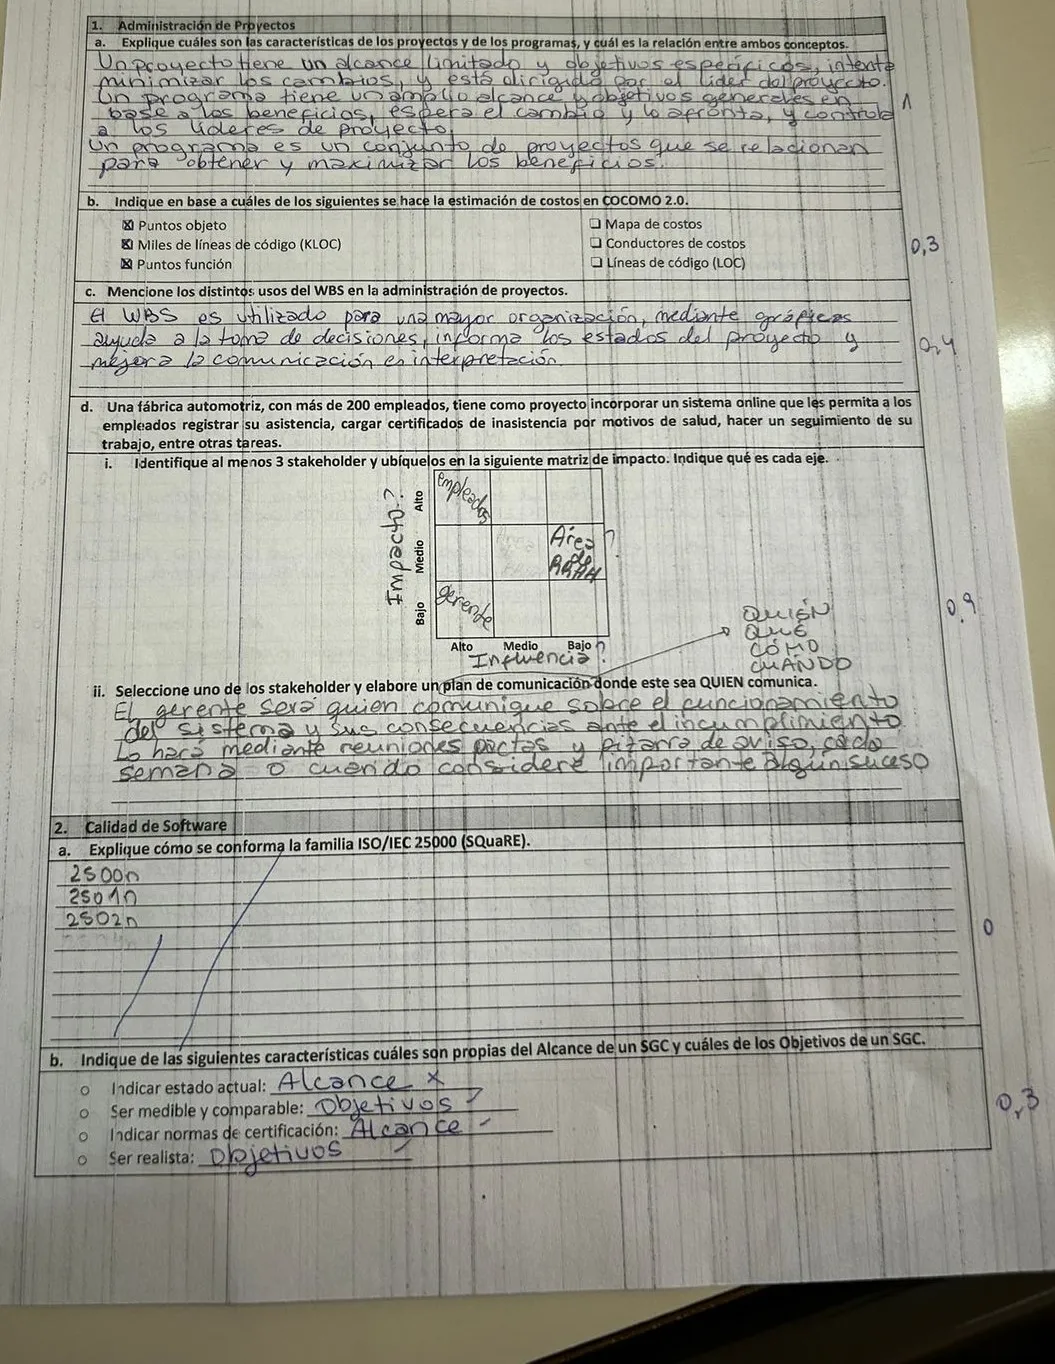 1. Administración de Proyectos
a. Explique cuáles son las características de los proyectos y de los programas, y cuál es la relación entre ambos conceptos.
Un proyecto tiene un alcance limitado y objetivos especificos, intenta
minimizar los cambios, y está dirigido por el lider del proyecto.
Un programa tiene un amplio alcance y objetivos generales en
base a los beneficios, espera el cambio y lo afronta, y controla
a los lideres de proyecto.
Un programa es un conjunto de proyectos que se relacionan
para obtener y maximizar los beneficios.
1
b. Indique en base a cuáles de los siguientes se hace la estimación de costos en COCOMO 2.0.
☒ Puntos objeto ❑ Mapa de costos
☒ Miles de líneas de código (KLOC) ❑ Conductores de costos
☒ Puntos función ❑ Líneas de código (LOC)
0,3
c. Mencione los distintos usos del WBS en la administración de proyectos.
El WBS es utilizado para una mayor organización, mediante gráficas
ayuda a la toma de decisiones, informa los estados del proyecto y
mejora la comunicación e interpretación
0,4
d. Una fábrica automotriz, con más de 200 empleados, tiene como proyecto incorporar un sistema online que les permita a los
empleados registrar su asistencia, cargar certificados de inasistencia por motivos de salud, hacer un seguimiento de su
trabajo, entre otras tareas.
i. Identifique al menos 3 stakeholder y ubíquelos en la siguiente matriz de impacto. Indique qué es cada eje.
Impacto?
Alto
Medio
Bajo
empleados
Área ?
de
RRHH
gerente
Alto Medio Bajo ?
Influencia?
0,9
QUIÉN
QUÉ
CÓMO
CUÁNDO
ii. Seleccione uno de los stakeholder y elabore un plan de comunicación donde este sea QUIEN comunica.
El gerente será quien comunique sobre el funcionamiento
del sistema y sus consecuencias ante el incumplimiento
Lo hará mediante reuniones pactas y pizarra de aviso, cada
semana o cuando considere importante algún suceso
2. Calidad de Software
a. Explique cómo se conforma la familia ISO/IEC 25000 (SQuaRE).
2500n
2501n
2502n
0
b. Indique de las siguientes características cuáles son propias del Alcance de un SGC y cuáles de los Objetivos de un SGC.
o Indicar estado actual: Alcance x
o Ser medible y comparable: Objetivos
o Indicar normas de certificación: Alcance
o Ser realista: Objetivos
0,3